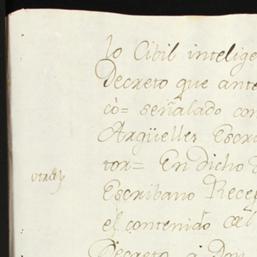 lo Cibil intelige
Decreto que ante
cò= señalado con
Argüelles Escri
tor= En dicho
Escribano Recep
el contenido del
Decreto a Don